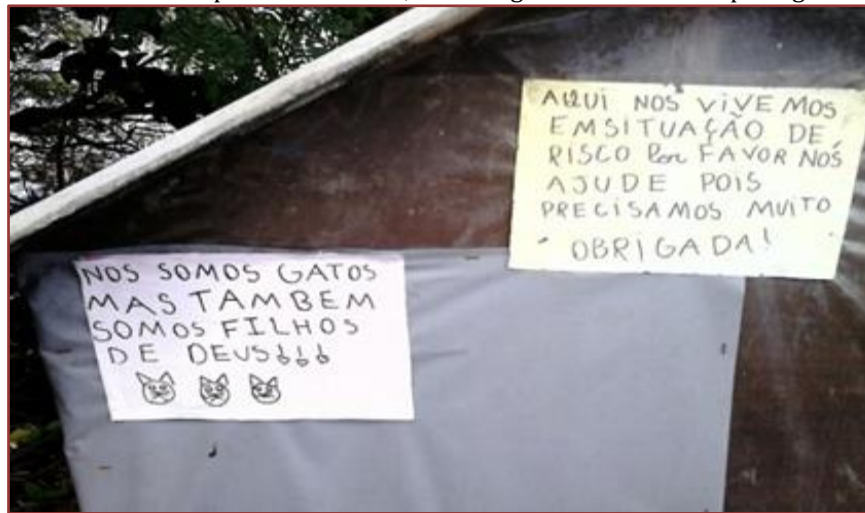 NOS SOMOS GATOS
MAS TAMBEM
SOMOS FILHOS
DE DEUS!!!
AQUI NOS VIVEMOS
EMSITUAÇÃO DE
RISCO Por FAVOR NÓS
AJUDE POIS
PRECISAMOS MUITO
OBRIGADA!